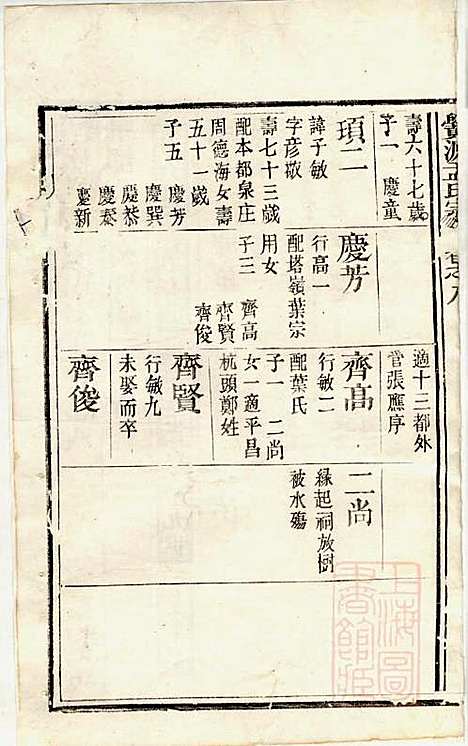 壽六十七歲
子一 慶童
項二
諱子敏
字彥敬
壽七十三歲
配本都泉庄
周德海女壽
五十一歲
子五 慶芳
慶巽
慶恭
慶泰
慶新
慶芳
行高一
配塔嶺葉宗
用女
子三 齊高
齊賢
齊俊
適十三都外
嘗張應序
齊高
行敏二
配葉氏
子一 二尚
女一適平昌
杭頭鄭姓
齊賢
行敏九
未娶而卒
齊俊
二尚
緣起祠放樹
被水殤
卷之八
上海圖
書館藏